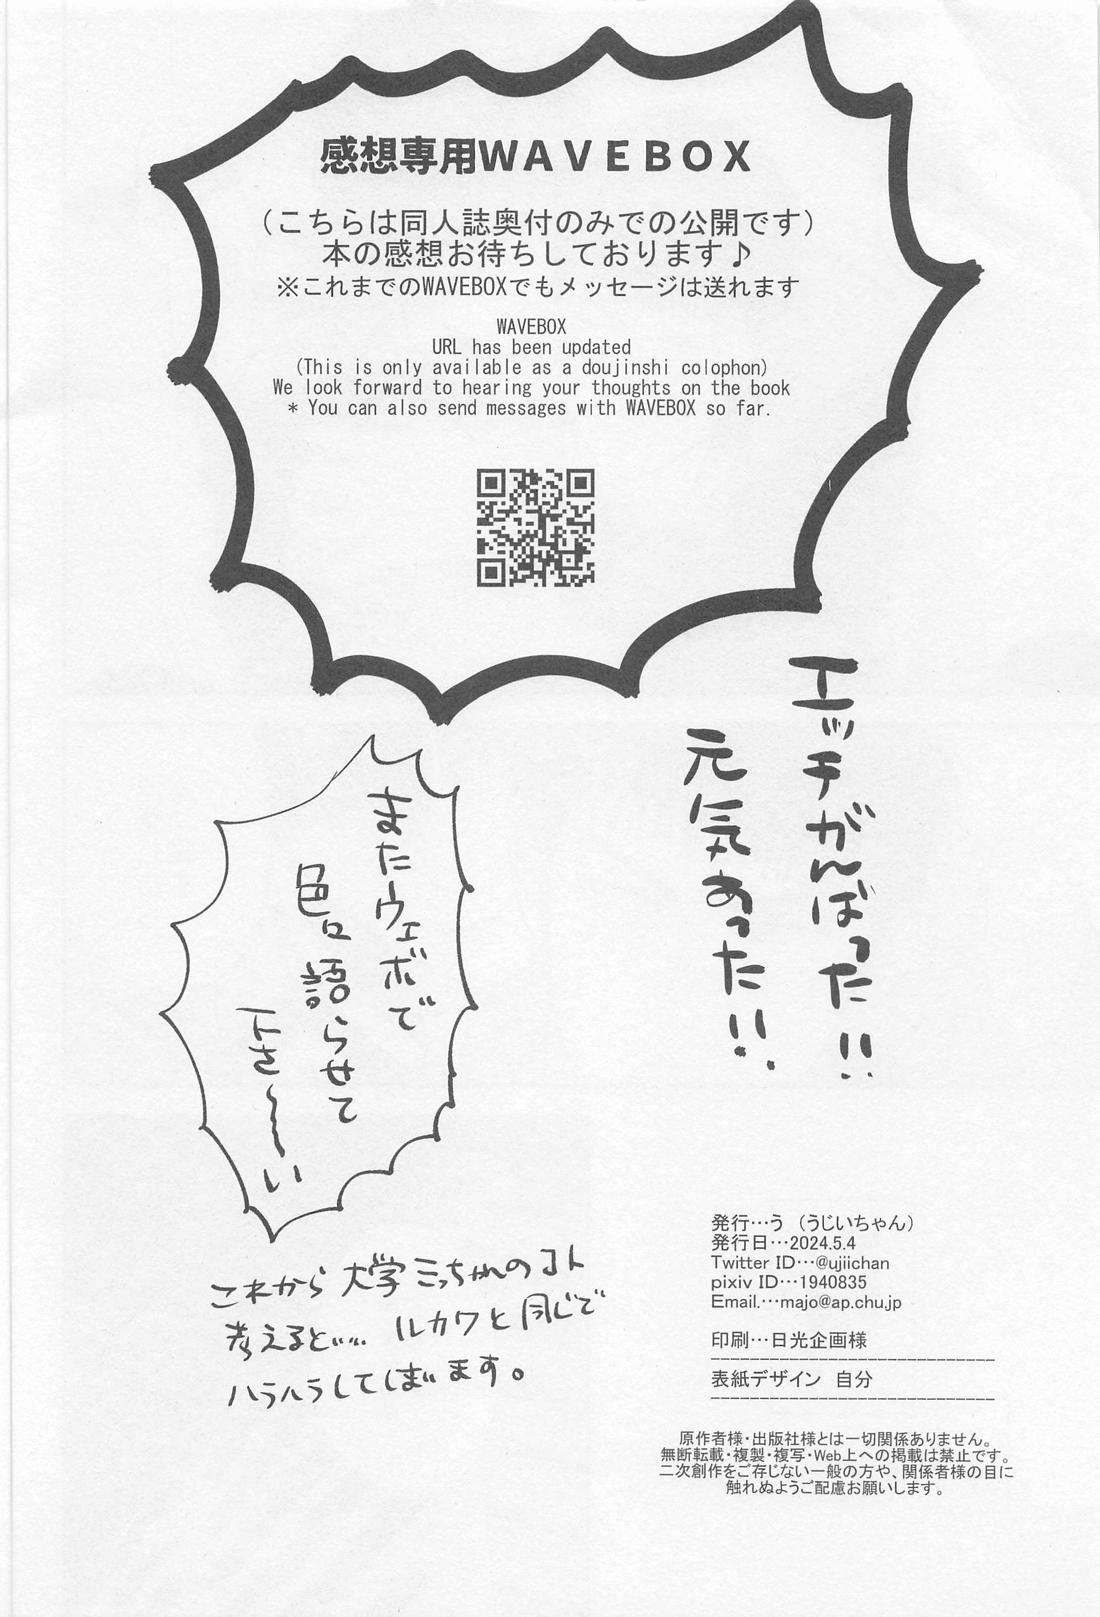 感想専用WAVEBOX
（こちらは同人誌奥付のみでの公開です）
本の感想お待ちしております♪
※これまでのWAVEBOXでもメッセージは送れます
WAVEBOX
URL has been updated
(This is only available as a doujinshi colophon)
We look forward to hearing your thoughts on the book
* You can also send messages with WAVEBOX so far.
エッチがんばった!!
元気あった!!
またウェボで
色々語らせて
下さ〜い
これから大学ミっちゃんのコト
考えると…… ルカワと同じで
ハラハラしてしまいます。
発行…う（うじいちゃん）
発行日…2024.5.4
Twitter ID…@ujiichan
pixiv ID…1940835
Email.…majo@ap.chu.jp
印刷…日光企画様
表紙デザイン 自分
原作者様・出版社様とは一切関係ありません。
無断転載・複製・複写・Web上への掲載は禁止です。
二次創作をご存じない一般の方や、関係者様の目に
触れぬようご配慮お願いします。